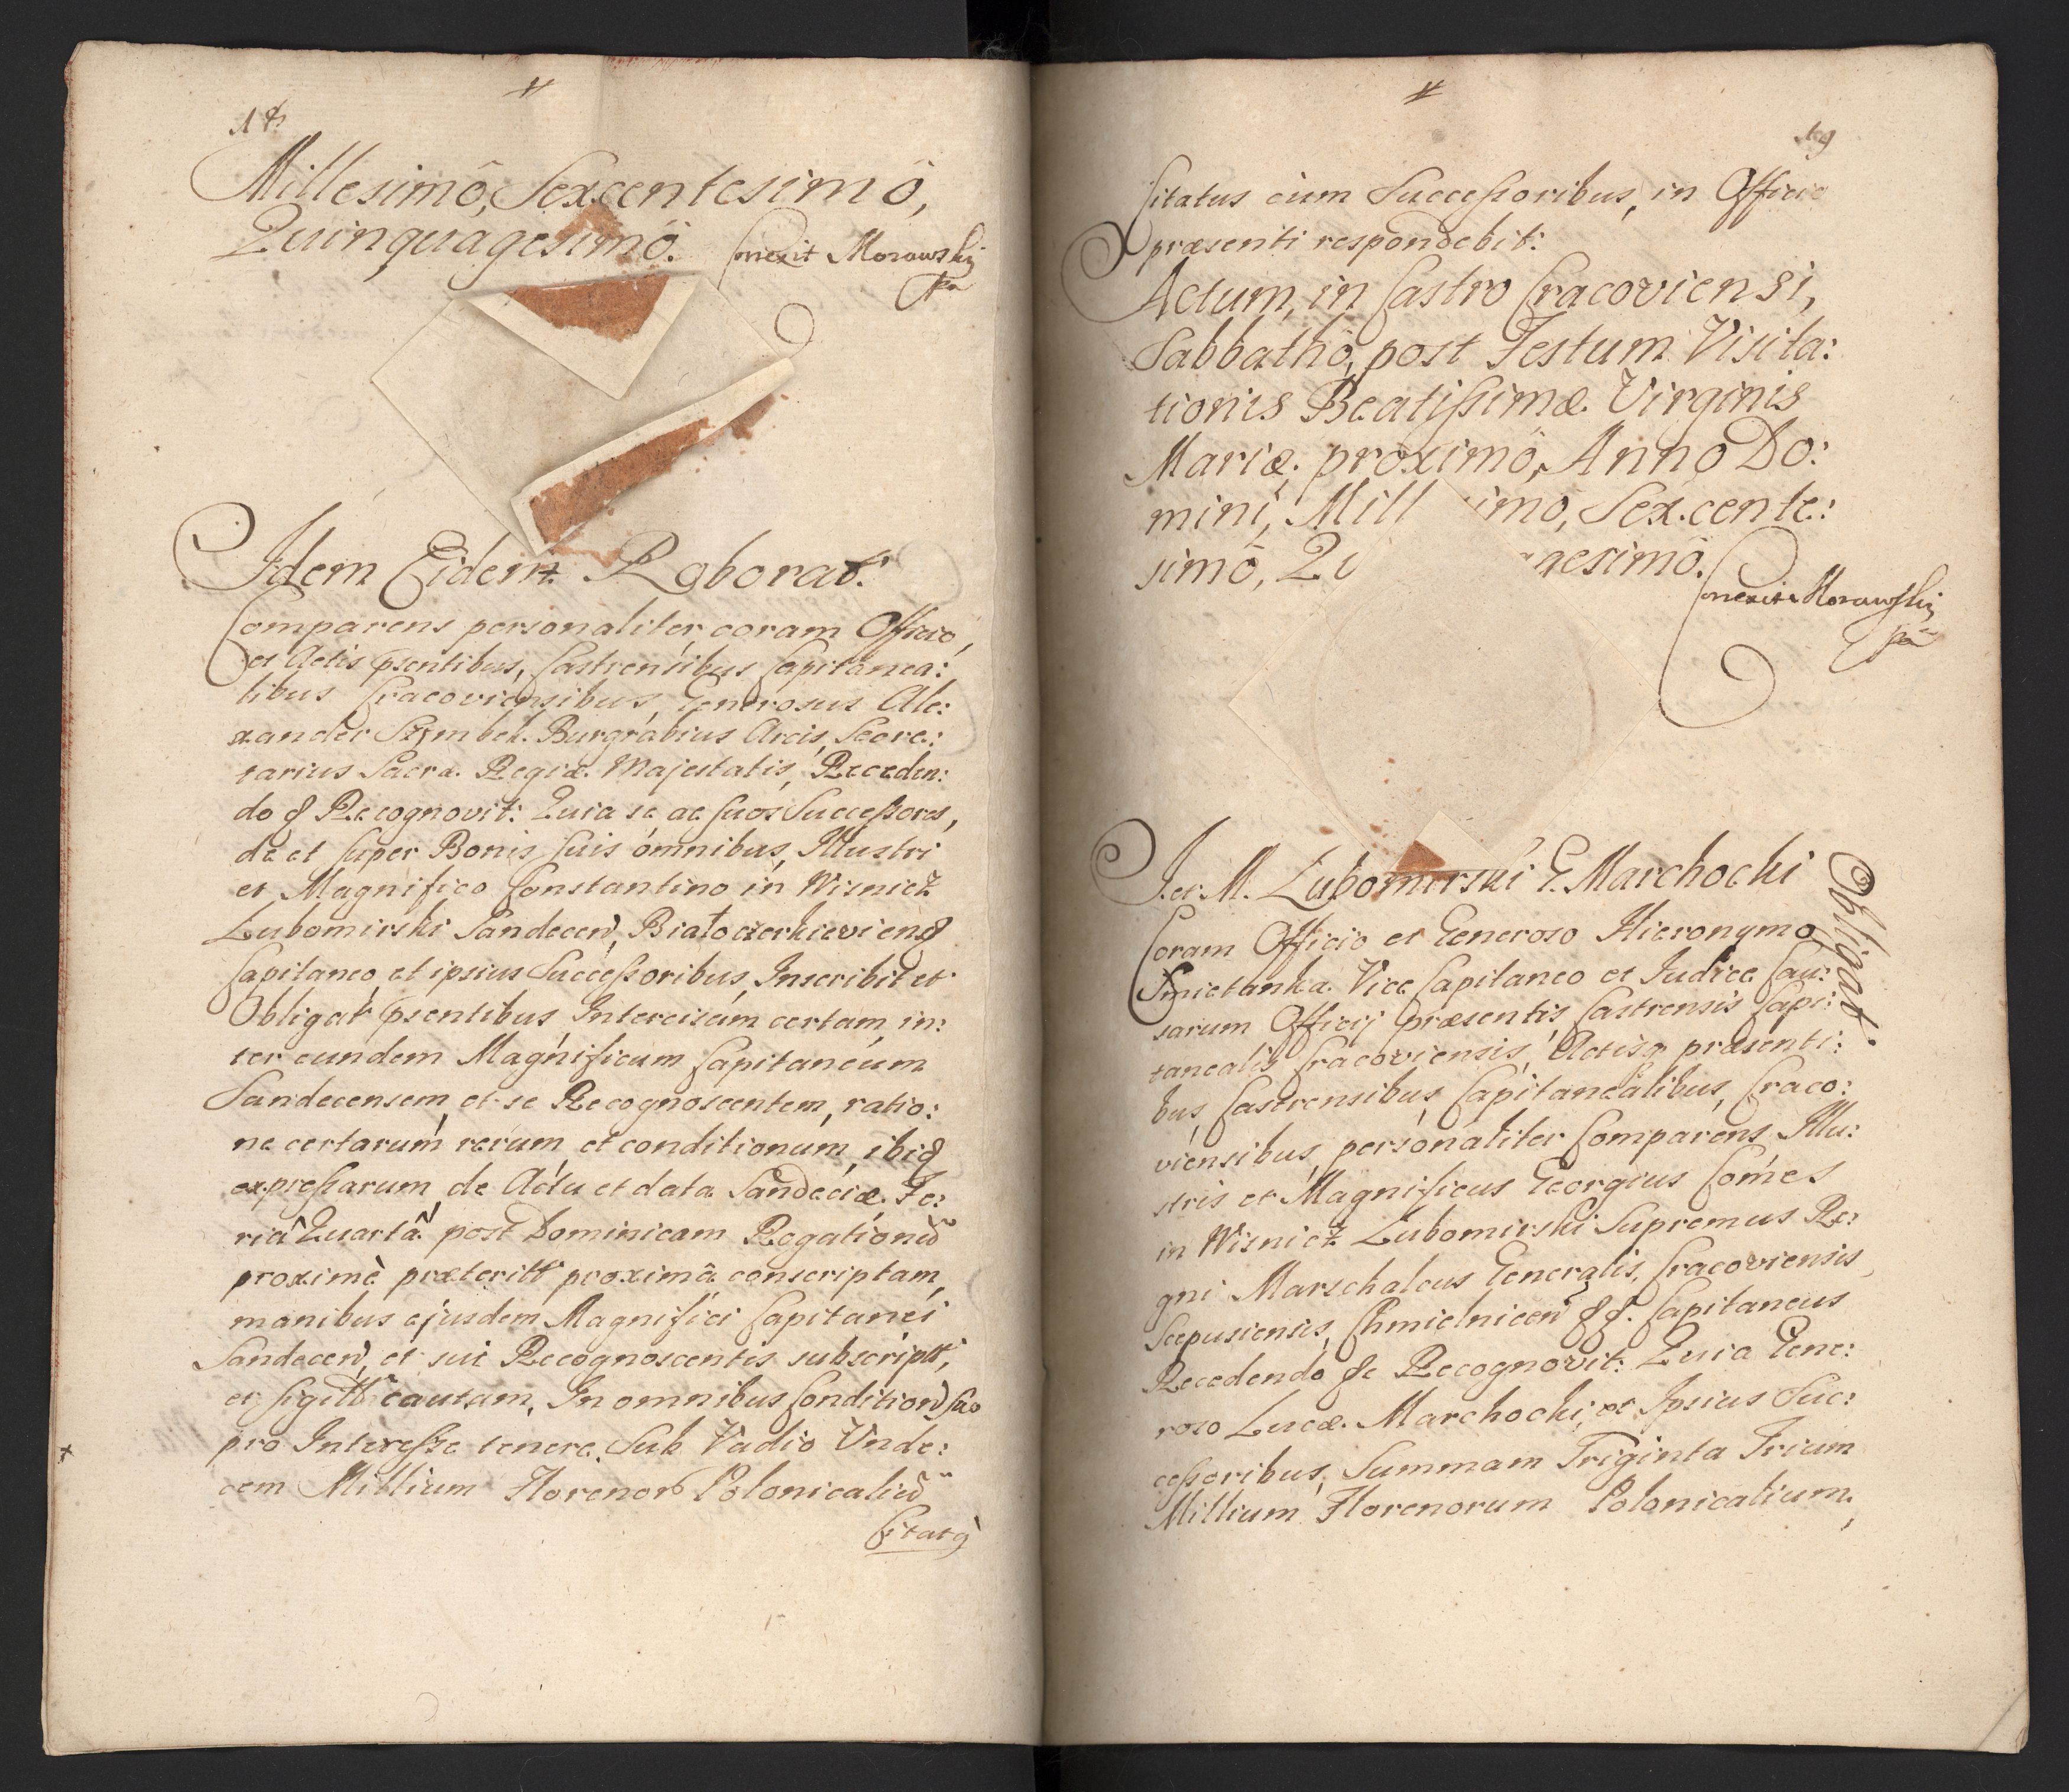 18
Millesimô, Sexcentesimô,
Quinquagesimô. Conexit Morawskj
Idem Eidem Roborat.
Comparens personaliter coram Officio,
et Actis psentibus, Castrensibus Capitanea:
libus Cracoviensibus, Generosus Ale:
xander Szembek Burgrabius Arcis, Secre:
tarius Sacræ Regiæ Majestatis, Receden:
do & Recognovit: Quia se ac suos Successores,
de et super Bonis suis omnibus, Illustri
et Magnifico Constantino in Wisnicz
Lubomirski Sandecen, Białoczerkieviens
Capitaneo, et ipsius Successoribus, Inscribit et
Obligat psentibus Intercisam certam, in:
ter eundem Magnificum Capitaneum
Sandecensem, et se Recognoscentem, ratio:
ne certarum rerum, et conditionum, ibiq
expressarum, de Actu et data Sandeciæ, Fe:
riâ Quartâ post Dominicam Rogationu
proximè præteritt proximâ conscriptam,
manibus ejusdem Magnifici Capitanei
Sandecen, et sui Recognoscentis subscriptt,
et sigitt cautam, In omnibus Condition suo
pro Interesse tenere. Sub Vadio Unde:
cem Millium Florenor Polonicaliu
Citatq
19
Citatus cum Successoribus, in Officio
præsenti respondebit.
Actum, in Castro Cracoviensi,
Sabbathô, post Festum Visita:
tionis Beatissimæ Virginis
Mariæ, proximô, Annô Do:
mini, Mill imo, Sexcente:
simô, Qu agesimô.
Conexit Morawskj
I. et M. Lubomirski G. Marchocki
Obligat.
Coram Officio et Generoso Hieronymo
Smietanka Vice Capitaneo et Iudice Cau:
sarum Officij præsentis Castrensis Capi:
tanealis Cracoviensis, Actisq præsenti:
bus, Castrensibus, Capitanealibus, Craco:
viensibus, personaliter Comparens Illu:
stris et Magnificus Georgius Comes
in Wisnicz Lubomirski Supremus Re:
gni Marschalcus Generalis, Cracoviensis,
Scepusiensis, Chmielnicen && Capitaneus
Recedendo &c Recognovit: Quia Gene:
roso Lucæ Marchocki, et Ipsius Suc:
cessoribus, Summam Triginta Trium
Millium Florenorum Polonicalium,